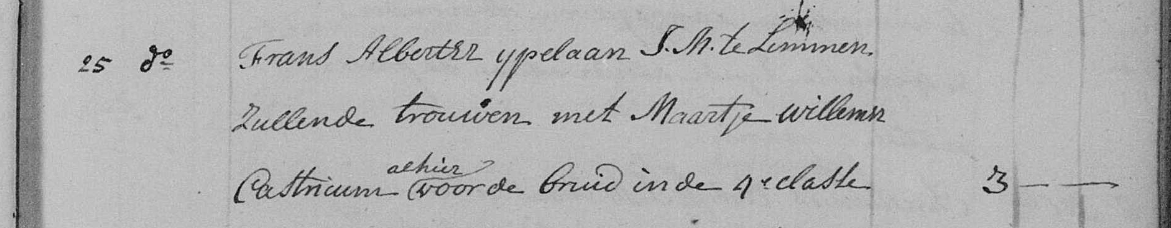 25 do Frans Albertsz ypelaan J.M. te Limmen
Zullende trouwen met Maartje willemsz
alhier
Castricum voor de bruid in de 4e classe 3 — —